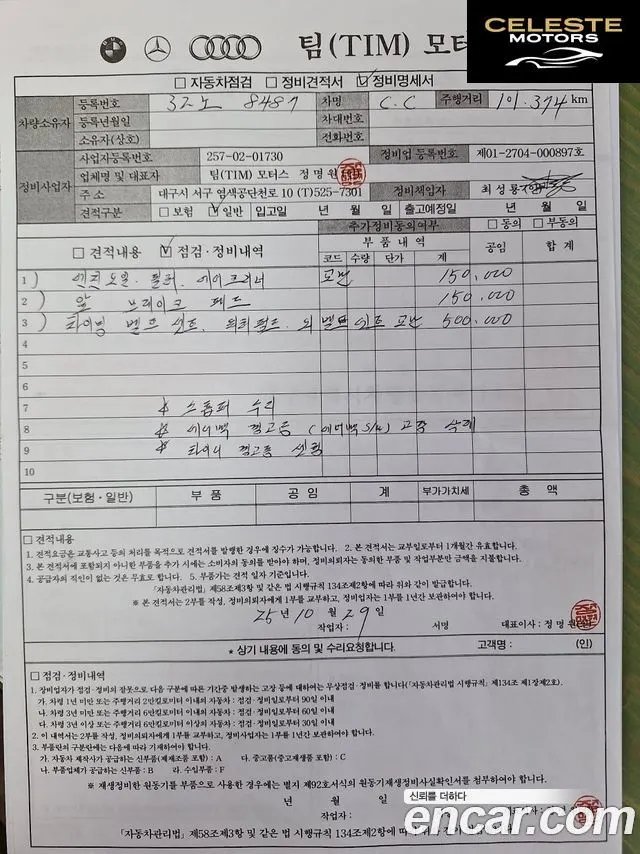 CELESTE
MOTORS
팀(TIM) 모터
□ 자동차점검 □ 정비견적서 ☑ 정비명세서
차량소유자 등록번호 32노 8487 차명 C.C 주행거리 101.374 km
등록년월일 차대번호
소유자(상호) 전화번호
정비사업자 사업자등록번호 257-02-01730 정비업 등록번호 제01-2704-000897호
업체명 및 대표자 팀(TIM) 모터스 정 명 원
주 소 대구시 서구 염색공단천로 10 (T)525-7301 정비책임자 최 성 룡
견적구분 □ 보험 ☑ 일반 입고일 년 월 일 출고예정일 년 월 일
□ 견적내용 ☑ 점검·정비내역 추가정비동의여부 □ 동의 □ 부동의
부 품 내 역 공임 합 계
코드 수량 단가 계
1 ) 엔진오일. 필터. 에어크리너 교환 150,000
2 ) 앞 브레이크 패드 150,000
3 ) 타이밍 벨트 셋트. 워터펌프. 외 벨트 셋트 교환 500,000
4
5
6
7 * 스톱퍼 수리
8 * 에어백 경고등 (에어백 S/W) 고장 삭제
9 * 타이어 경고등 셋팅
10
구분(보험·일반) 부 품 공 임 계 부가가치세 총 액
□ 견적내용
1. 견적요금은 교통사고 등의 처리를 목적으로 견적서를 발행한 경우에 징수가 가능합니다. 2. 본 견적서는 교부일로부터 1개월간 유효합니다.
3. 본 견적서에 포함되지 아니한 부품을 추가 시에는 소비자의 동의를 받아야 하며, 정비의뢰자는 동의한 부품 및 작업부분만 금액을 지불합니다.
4. 공급자의 직인이 없는 것은 무효로 합니다. 5. 부품가는 견적 일자 기준입니다.
「자동차관리법」 제58조제3항 및 같은 법 시행규칙 134조제2항에 따라 위와 같이 발급합니다.
※ 본 견적서는 2부를 작성, 정비의뢰자에게 1부를 교부하고, 정비업자는 1부를 1년간 보관하여야 합니다.
25년 10 월 29 일
작업자 : 서명 대표이사 : 정 명 원
* 상기 내용에 동의 및 수리요청합니다. 고객명 : (인)
□ 점검·정비내역
1. 정비업자가 점검·정비의 잘못으로 다음 구분에 따른 기간중 발생하는 고장 등에 대하여는 무상점검·정비를 합니다(「자동차관리법 시행규칙」 제134조 제1장제2호).
가. 차령 1년 미만 또는 주행거리 2만킬로미터 이내의 자동차 : 점검·정비일로부터 90일 이내
나. 차령 3년 미만 또는 주행거리 6만킬로미터 이내의 자동차 : 점검·정비일로부터 60일 이내
다. 차령 3년 이상 또는 주행거리 6만킬로미터 이상의 자동차 : 점검·정비일로부터 30일 이내
2. 이 내역서는 2부를 작성, 정비의뢰자에게 1부를 교부하고, 정비사업자는 1부를 1년간 보관하여야 합니다.
3. 부품란의 구분란에는 다음에 따라 기재하여야 합니다.
가. 자동차 제작사가 공급하는 신부품(제재조품 포함) : A 다. 중고품(중고재생품 포함) : C
나. 부품업체가 공급하는 신부품 : B 라. 수입부품 : F
※ 재생정비한 원동기를 부품으로 사용한 경우에는 별지 제92호서식의 원동기재생정비사실확인서를 첨부하여야 합니다.
년 월 일
작업자 :
「자동차관리법」 제58조제3항 및 같은 법 시행규칙 134조제2항에 따
신뢰를 더하다
encar.com